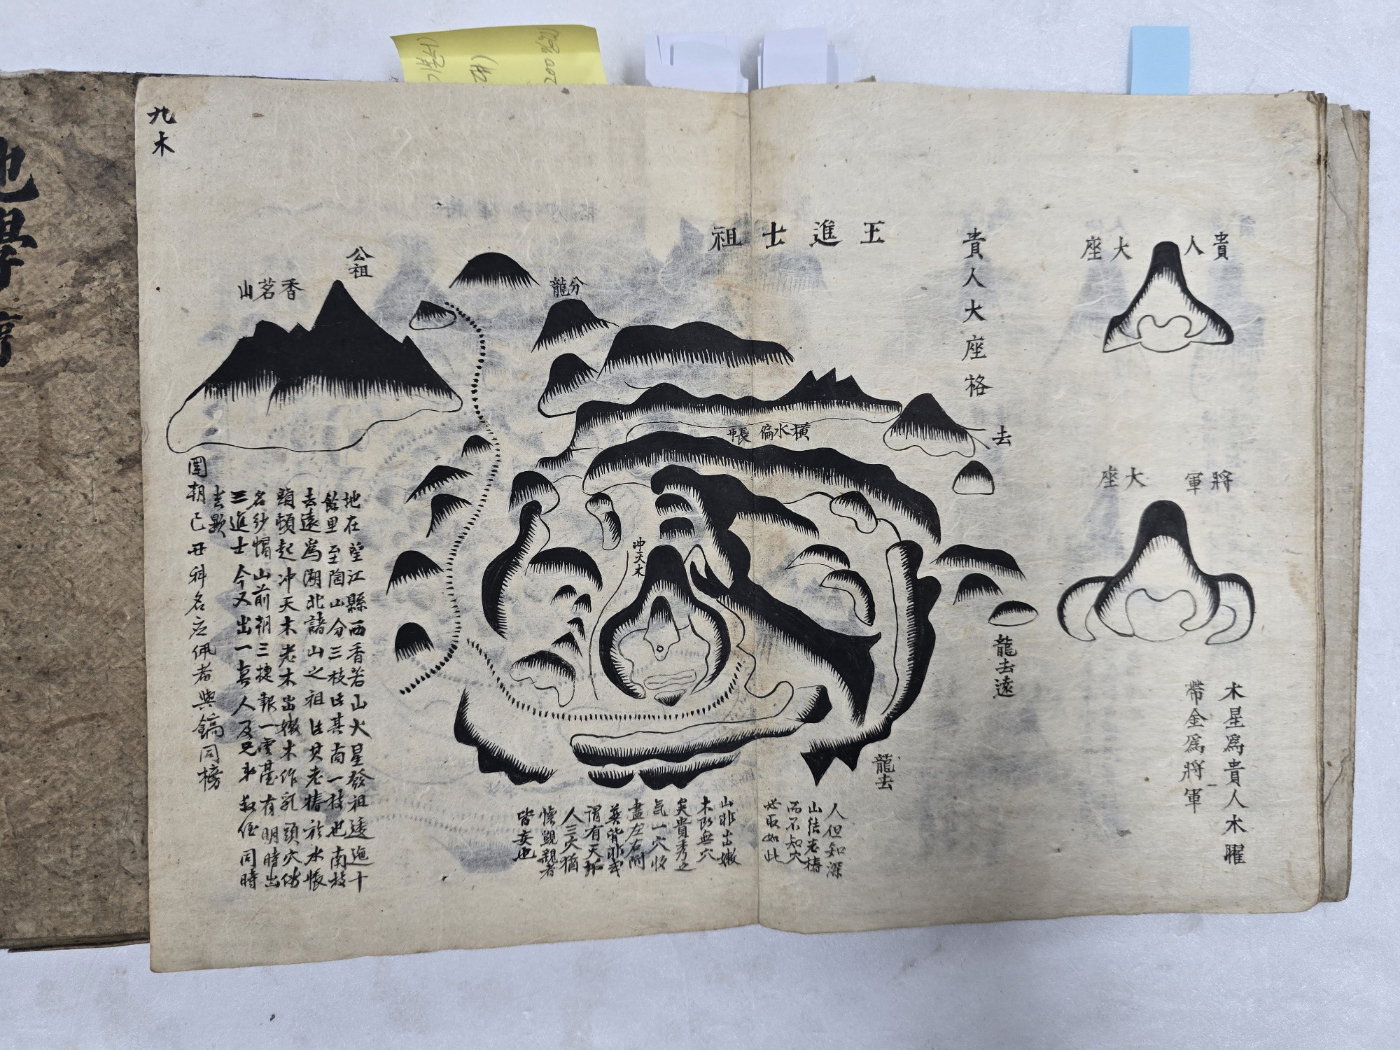 貴人大座
將軍大座
木星爲貴人木曜
帶金爲將軍
貴人大座格
王進士祖
去
橫水偏帳
龍去遠
龍去
分龍
公祖
香茗山
冲天木
人但知深
山結老樁
而不知穴
必取如此
山非出嫩
木防無穴
矣貴秀之
氣一穴收
盡左右附
葬皆非或
謂有天
人三穴猶
懷覬覦者
皆妄也
地在望江縣西香茗山火星發祖逶迤十
餘里至陶山分三枝此其南一枝也南枝
去遠爲湖北諸山之祖此其老樁於水帳
頭頓起冲天木老木出嫩木作乳頭穴傍
名紗帽山前朝三捷報一雲臺有明時出
三進士今又出一真人及兄弟叔侄同時
去歟
國朝己丑科名应佩者與鎬同榜
九木
地學